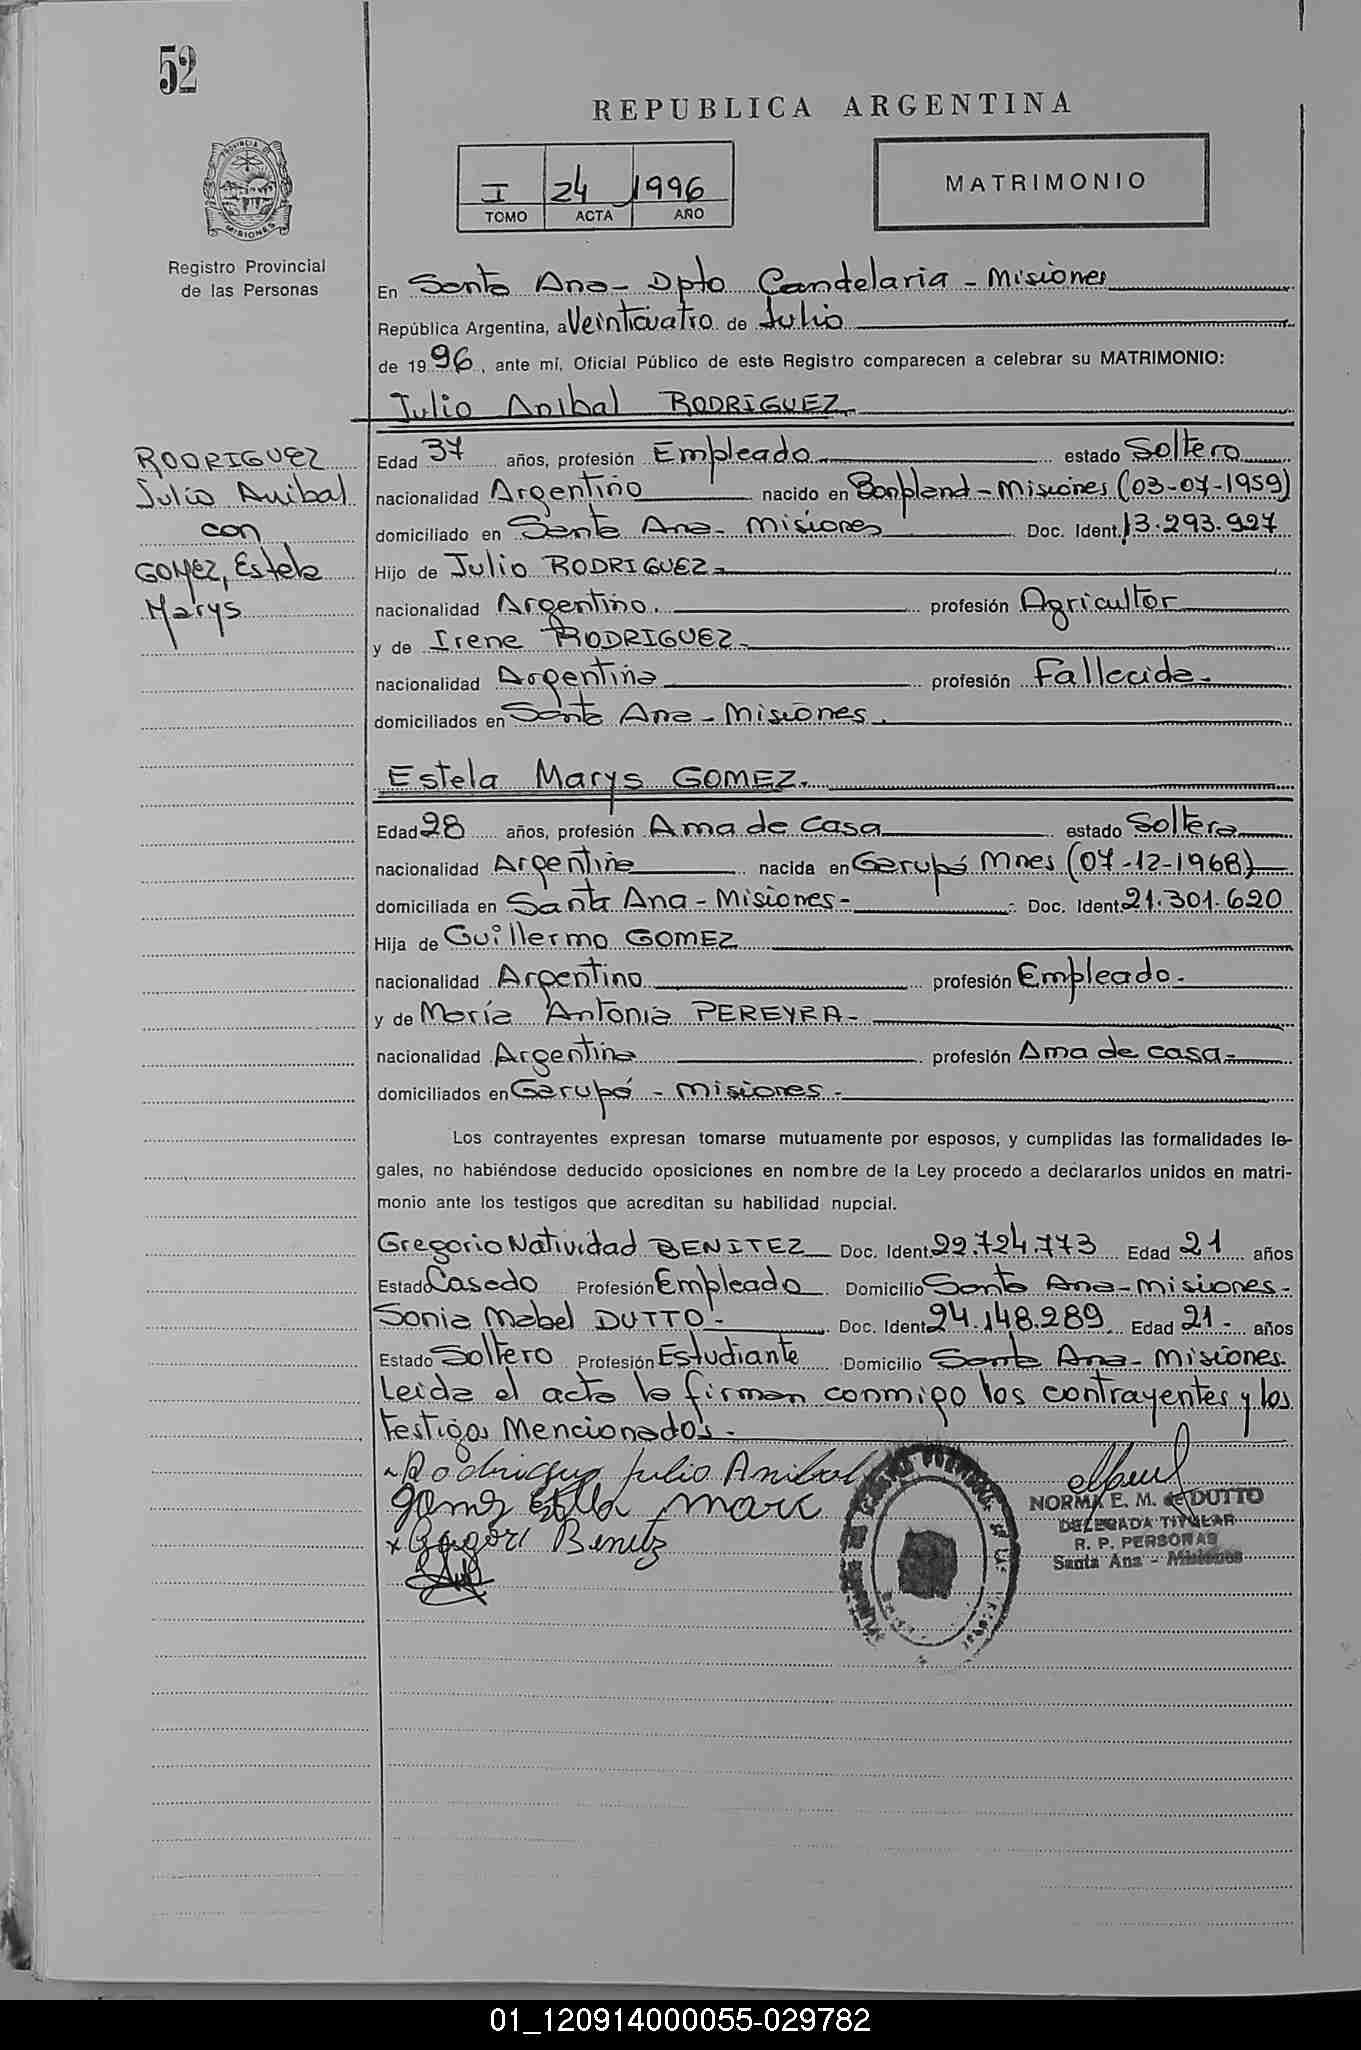 52
REPUBLICA ARGENTINA
I 24 1996
TOMO ACTA AÑO
MATRIMONIO
PROVINCIA DE MISIONES
Registro Provincial
de las Personas
En Santa Ana - Dpto Candelaria - Misiones
República Argentina, a Veinticuatro de Julio
de 1996, ante mí, Oficial Público de este Registro comparecen a celebrar su MATRIMONIO:
Julio Anibal RODRIGUEZ
RODRIGUEZ
Julio Anibal
con
GOMEZ, Estela
Marys
Edad 37 años, profesión Empleado estado Soltero
nacionalidad Argentino nacido en Bonpland - Misiones (03-07-1959)
domiciliado en Santa Ana - Misiones Doc. Ident. 13.293.927
Hijo de Julio RODRIGUEZ -
nacionalidad Argentino. profesión Agricultor
y de Irene RODRIGUEZ -
nacionalidad Argentina profesión Fallecida -
domiciliados en Santa Ana - Misiones.
Estela Marys GOMEZ.
Edad 28 años, profesión Ama de casa estado Soltera
nacionalidad Argentina nacida en Garupá Mnes (07-12-1968)
domiciliada en Santa Ana - Misiones - Doc. Ident. 21.301.620
Hija de Guillermo GOMEZ
nacionalidad Argentino profesión Empleado -
y de María Antonia PEREYRA -
nacionalidad Argentina profesión Ama de casa -
domiciliados en Garupá - Misiones -
Los contrayentes expresan tomarse mutuamente por esposos, y cumplidas las formalidades le-
gales, no habiéndose deducido oposiciones en nombre de la Ley procedo a declararlos unidos en matri-
monio ante los testigos que acreditan su habilidad nupcial.
Gregorio Natividad BENITEZ Doc. Ident. 22.724.773 Edad 21 años
Estado Casado Profesión Empleado Domicilio Santa Ana - Misiones -
Sonia Mabel DUTTO - Doc. Ident. 24.148.289 Edad 21 - años
Estado Soltero Profesión Estudiante Domicilio Santa Ana - Misiones.
Leida el acta la firman conmigo los contrayentes y los
testigos Mencionados -
Rodriguez Julio Anibal
gomez Estela mari
x Benitez
NORMA E. M. de DUTTO
DELEGADA TITULAR
R. P. PERSONAS
Santa Ana - Misiones
01_120914000055-029782